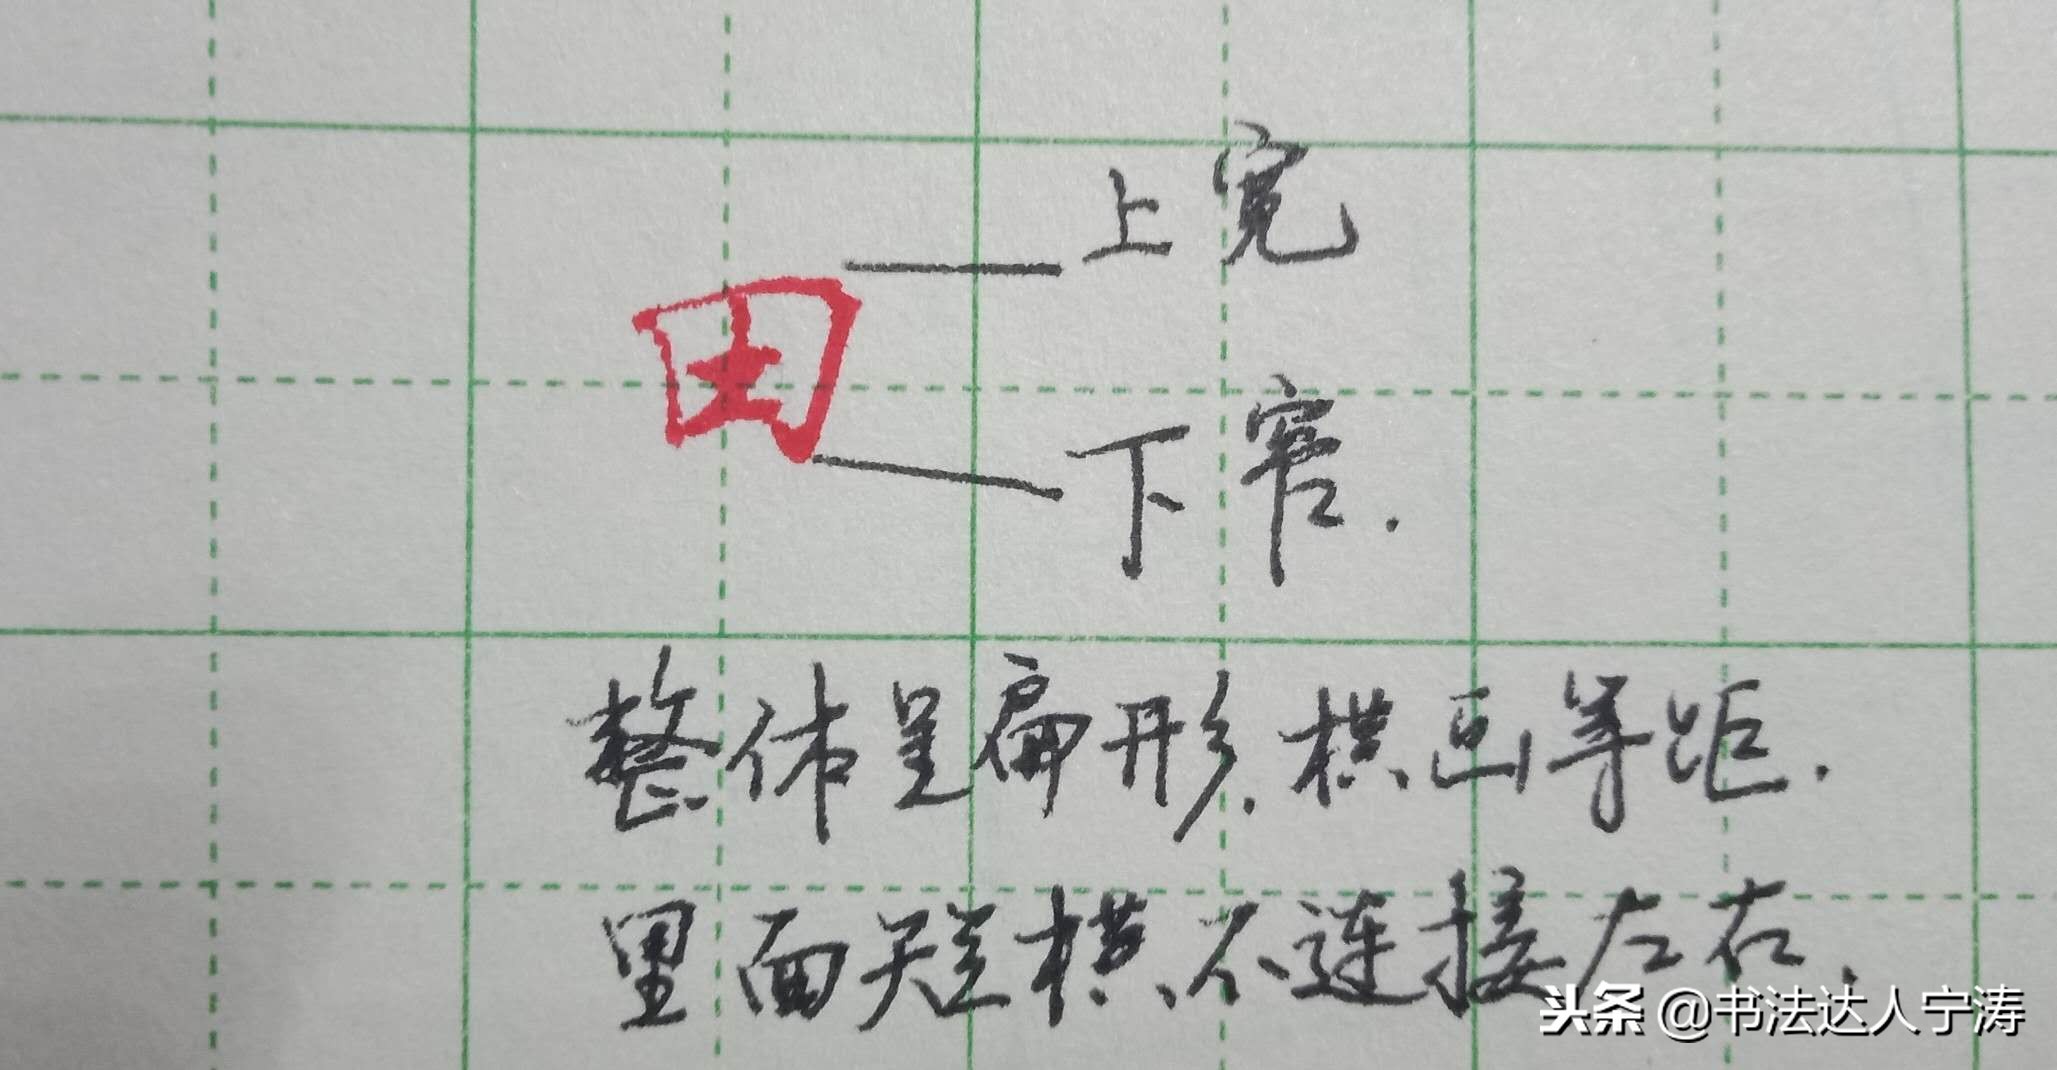 上宽
田
下窄.
整体呈扁形.横画等距.
里面短横不连接左右.
头条 @书法达人宁涛